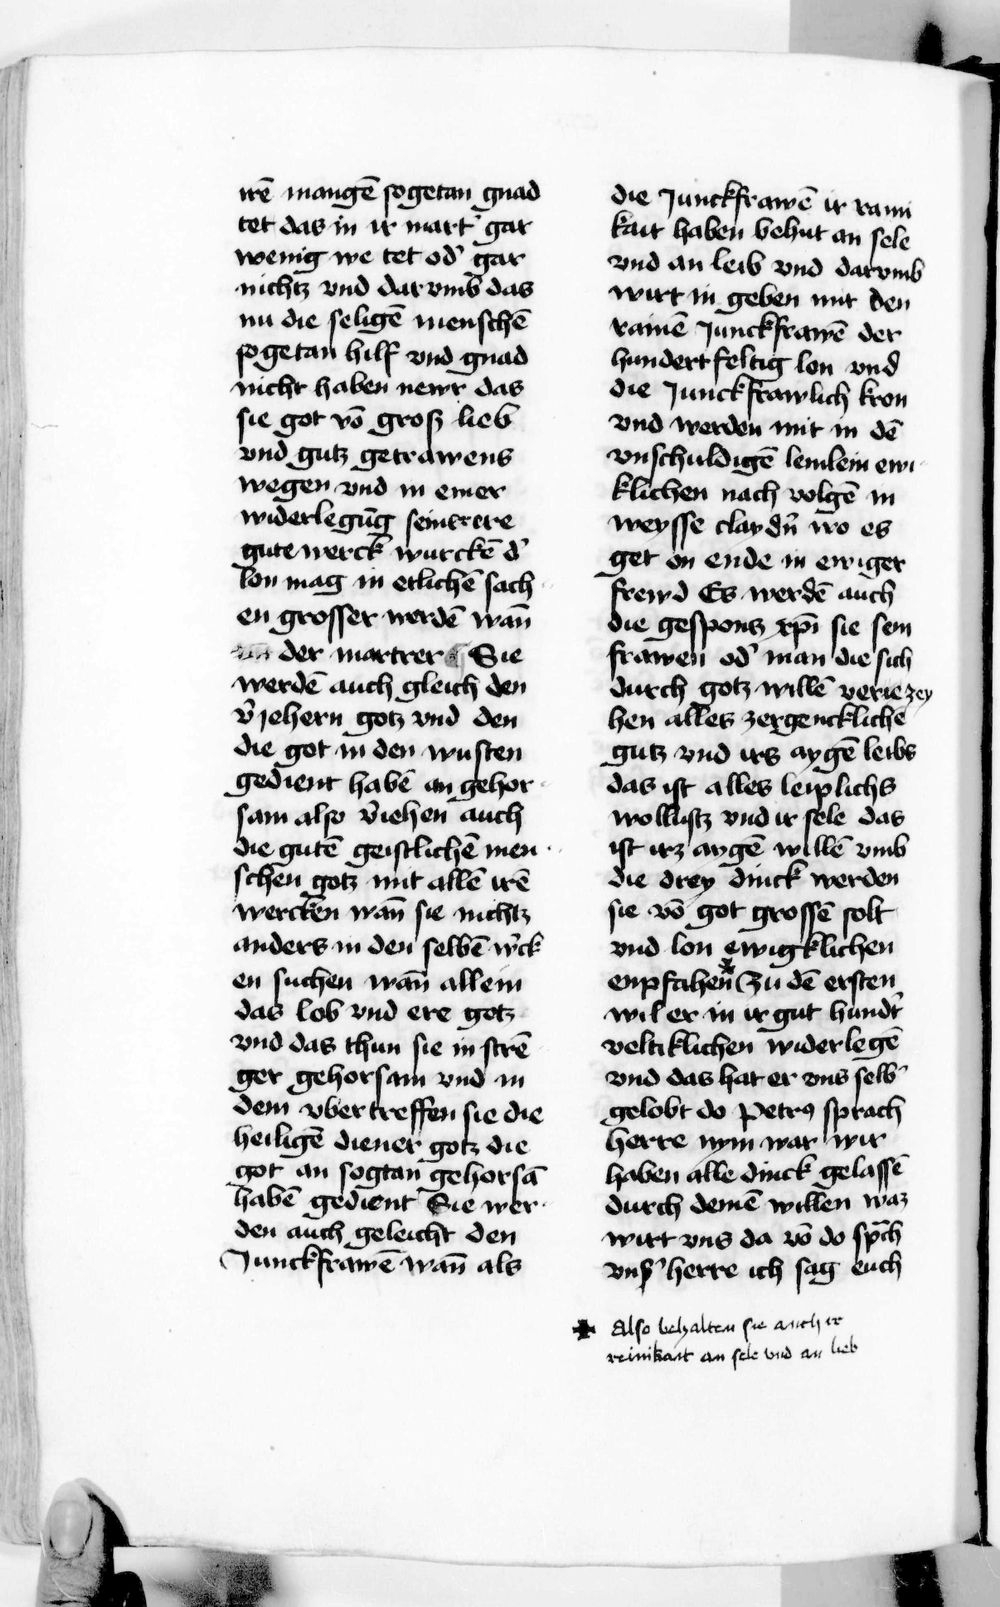 irē mangē sogetan gnad
tet das in ir mart' gar
wenig we tet od' gar
nichtz vnd darvmb das
nu die seligē menschē
sogetan hilf vnd gnad
nicht haben newr das
sie got vō groß lieb
vnd gutz getrawens
wegen vnd in einer
widerlegūg seinerere
gute werck wurckē d'
lon mag in etlichē sach
en grosser werdē wan̄
der martrer ¶ Sie
werdē auch gleich den
v̄jehern gotz vnd den
die got in den wusten
gedient habē an gehor
sam also v̄iehen auch
die gutē geistlichē men
schen gotz mit allē irē
wercken wan̄ sie nichtz
anders in den selbē w'ck
en suchen wan̄ allein
das lob vnd ere gotz
vnd das thun sie in strē
ger gehorsam vnd in
dem vbertreffen sie die
heiligē diener gotz die
got an sogtan gehorsā
habē gedient Sie wer
den auch geleicht den
Junckfrawē wan̄ als
die Junckfrawē ir raini
kait haben behut an sele
vnd an leib vnd darvmb
wirt in geben mit den
rainē Junckfrawē der
hundertfeltig lon vnd
die Junckfrawlich kron
vnd werden mit in dē
vnschuldigē lemlein ewi
klichen nach volgē in
weysse claydn̄ wo es
get on ende in ewiger
frewd Es werdē auch
die gesponß xp̄i sie sein
frawen od' man die sich
durch gotz willē veriezey
hen alles zergencklichē
gutz vnd irs aygē leibs
das ist alles leiplichs
wollustz vnd ir sele das
ist irz aygē willē vmb
die drey dinck werden
sie vō got grossē solt
vnd lon ewigklichen
enpfahen̄ Zu dē ersten
wil er in ir gut hundt'
veltiklichen widerlegē
vnd das hat er vns selb'
gelobt do Petrꝰ sprach
herre nym war wir
haben alle dinck gelassē
durch deinē willen waz
wirt vns da vō do sp̄ch
vnß' herre ich sag euch
✠ Also behalten sie auch ir
reinikait an sele vnd an lieb